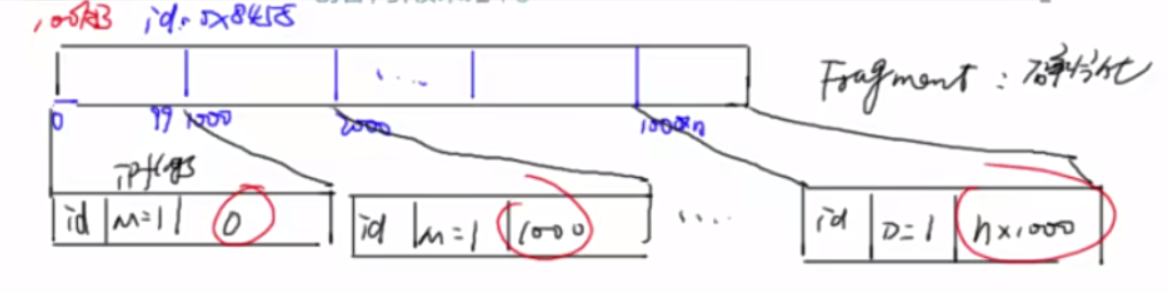 100KB id: 0x8458
...
Fragment : 碎片化
0 99 1000 2000 1000*n
ip flags
id M=1 0
id M=1 1000
....
id D=1 n×1000